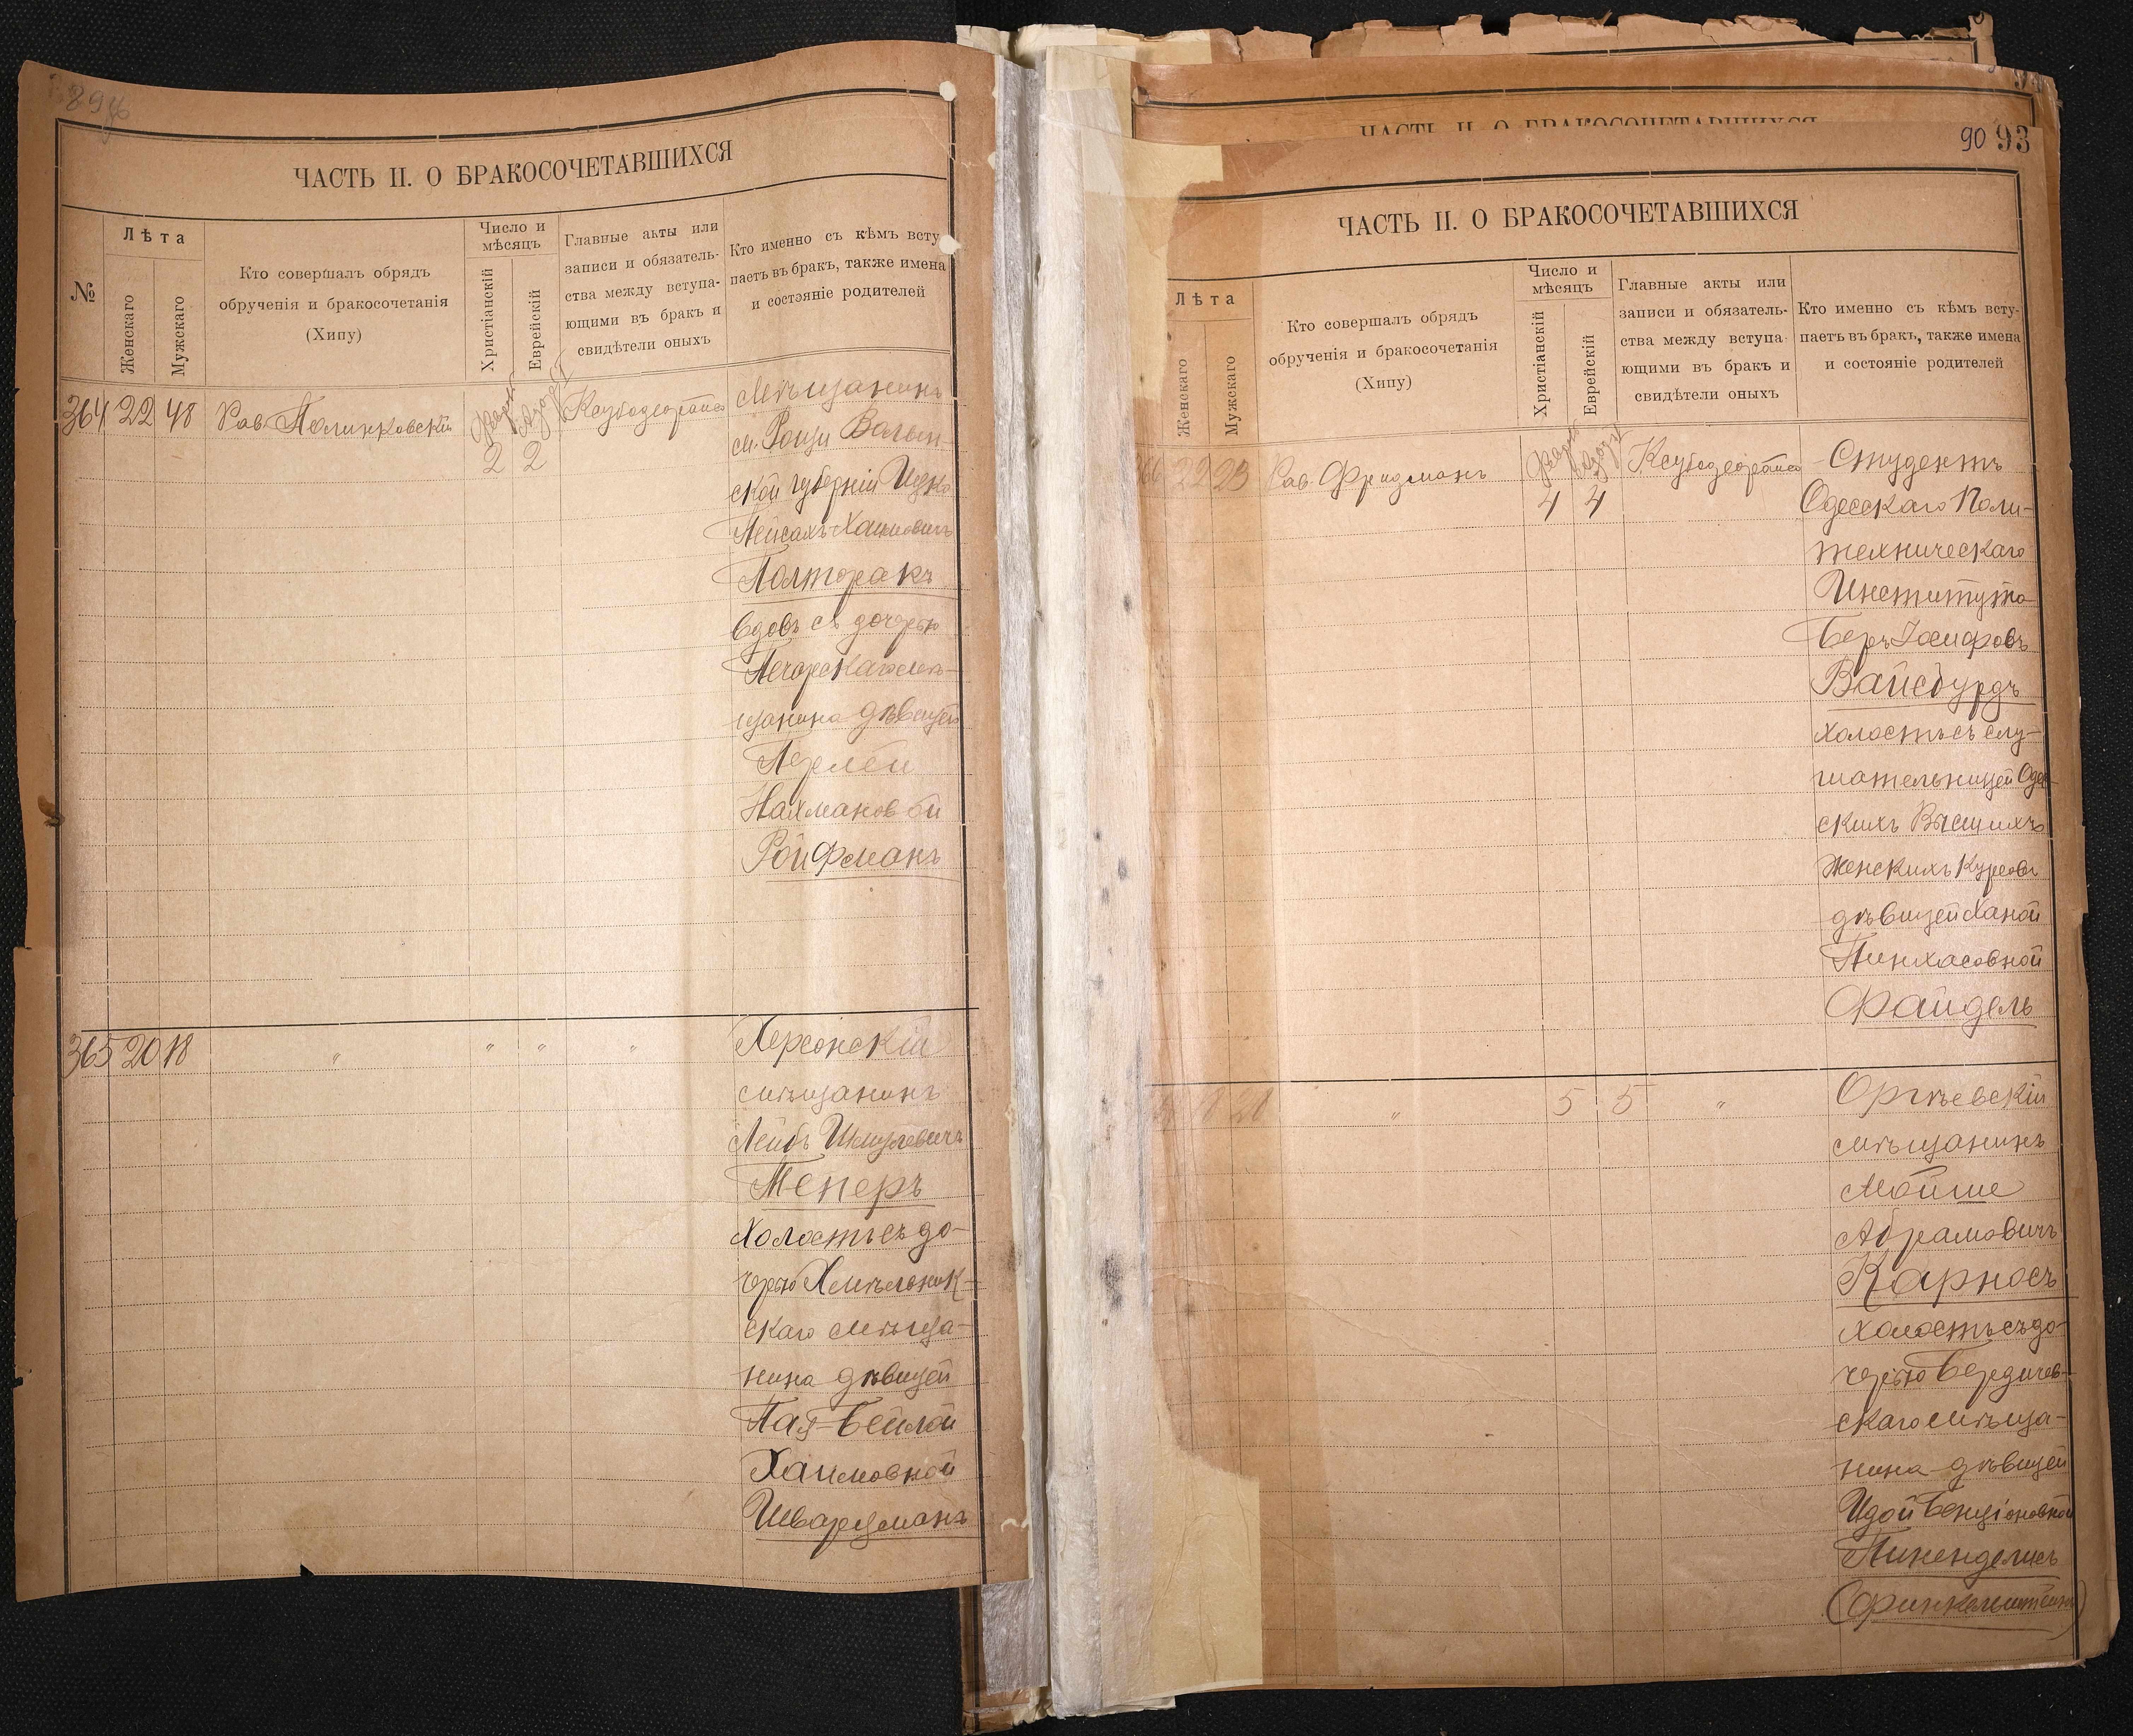 ЧАСТЬ II. О БРАКОСОЧЕТАВШИХСЯ
№
Лѣта
Женскаго
Мужскаго
Кто совершалъ обрядъ
обрученія и бракосочетанія
(Хипу)
Число и
мѣсяцъ
Христіанскій
Еврейскій
Главные акты или
записи и обязатель-
ства между вступа-
ющими въ бракъ и
свидѣтели оныхъ
Кто именно съ кѣмъ всту-
паетъ въ бракъ, также имена
и состояніе родителей
364 22 48 Рав. 2 2
Мѣщанинъ
м. Волын-
ской губерніи
Пейсахъ Хаимовичъ
Полторакъ
вдовъ съ дочерью
Печерскаго мѣ-
щанина дѣвицей
Перлей
Нахмановой
Ройфманъ
365 20 18 " " " "
Херсонскій
мѣщанинъ
Лейбъ Шмулевичъ
Теперъ
холостъ съ до-
черью Хмѣльник-
скаго мѣща-
нина дѣвицей
Пая-Бейлой
Хаимовной
Шварцманъ
ЧАСТЬ II. О БРАКОСОЧЕТАВШИХСЯ
90 93
ЧАСТЬ II. О БРАКОСОЧЕТАВШИХСЯ
Лѣта
Женскаго
Мужскаго
Кто совершалъ обрядъ
обрученія и бракосочетанія
(Хипу)
Число и
мѣсяцъ
Христіанскій
Еврейскій
Главные акты или
записи и обязатель-
ства между вступа-
ющими въ бракъ и
свидѣтели оныхъ
Кто именно съ кѣмъ всту-
паетъ въ бракъ, также имена
и состояніе родителей
22 23 Рав. Фридманъ 4 4
Студентъ
Одесскаго Поли-
техническаго
Института
Беръ Іосифовъ
Вайсбурдъ
холостъ съ слу-
шательницей Одес-
скихъ Высшихъ
Женскихъ Курсовъ
дѣвицей Ханой
Пинхасовной
Файдель
" 5 5 "
Оргѣевскій
мѣщанинъ
Мойше
Абрамовичъ
Карносъ
холостъ съ до-
черью Бердичев-
скаго мѣща-
нина дѣвицей
Идой Бенціоновной
(Финкельштейнъ)